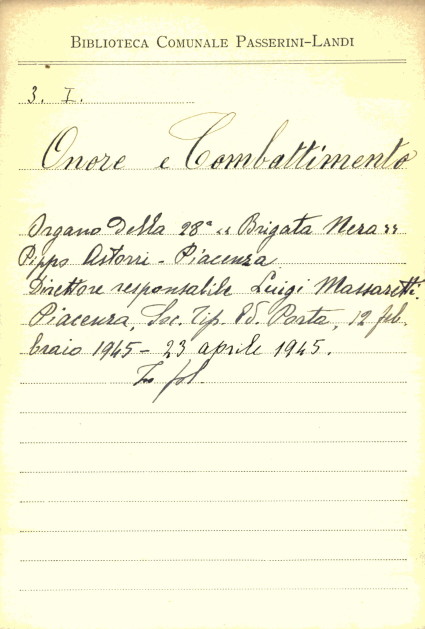 BIBLIOTECA COMUNALE PASSERINI-LANDI
3. I.
Onore e Combattimento
Organo della 28ª "Brigata Nera"
Pippo Astorri - Piacenza
Direttore responsabile Luigi Massaretti.
Piacenza, Soc. Tip. Ed. Porta, 12 feb
braio 1945 - 23 aprile 1945.
In fol.